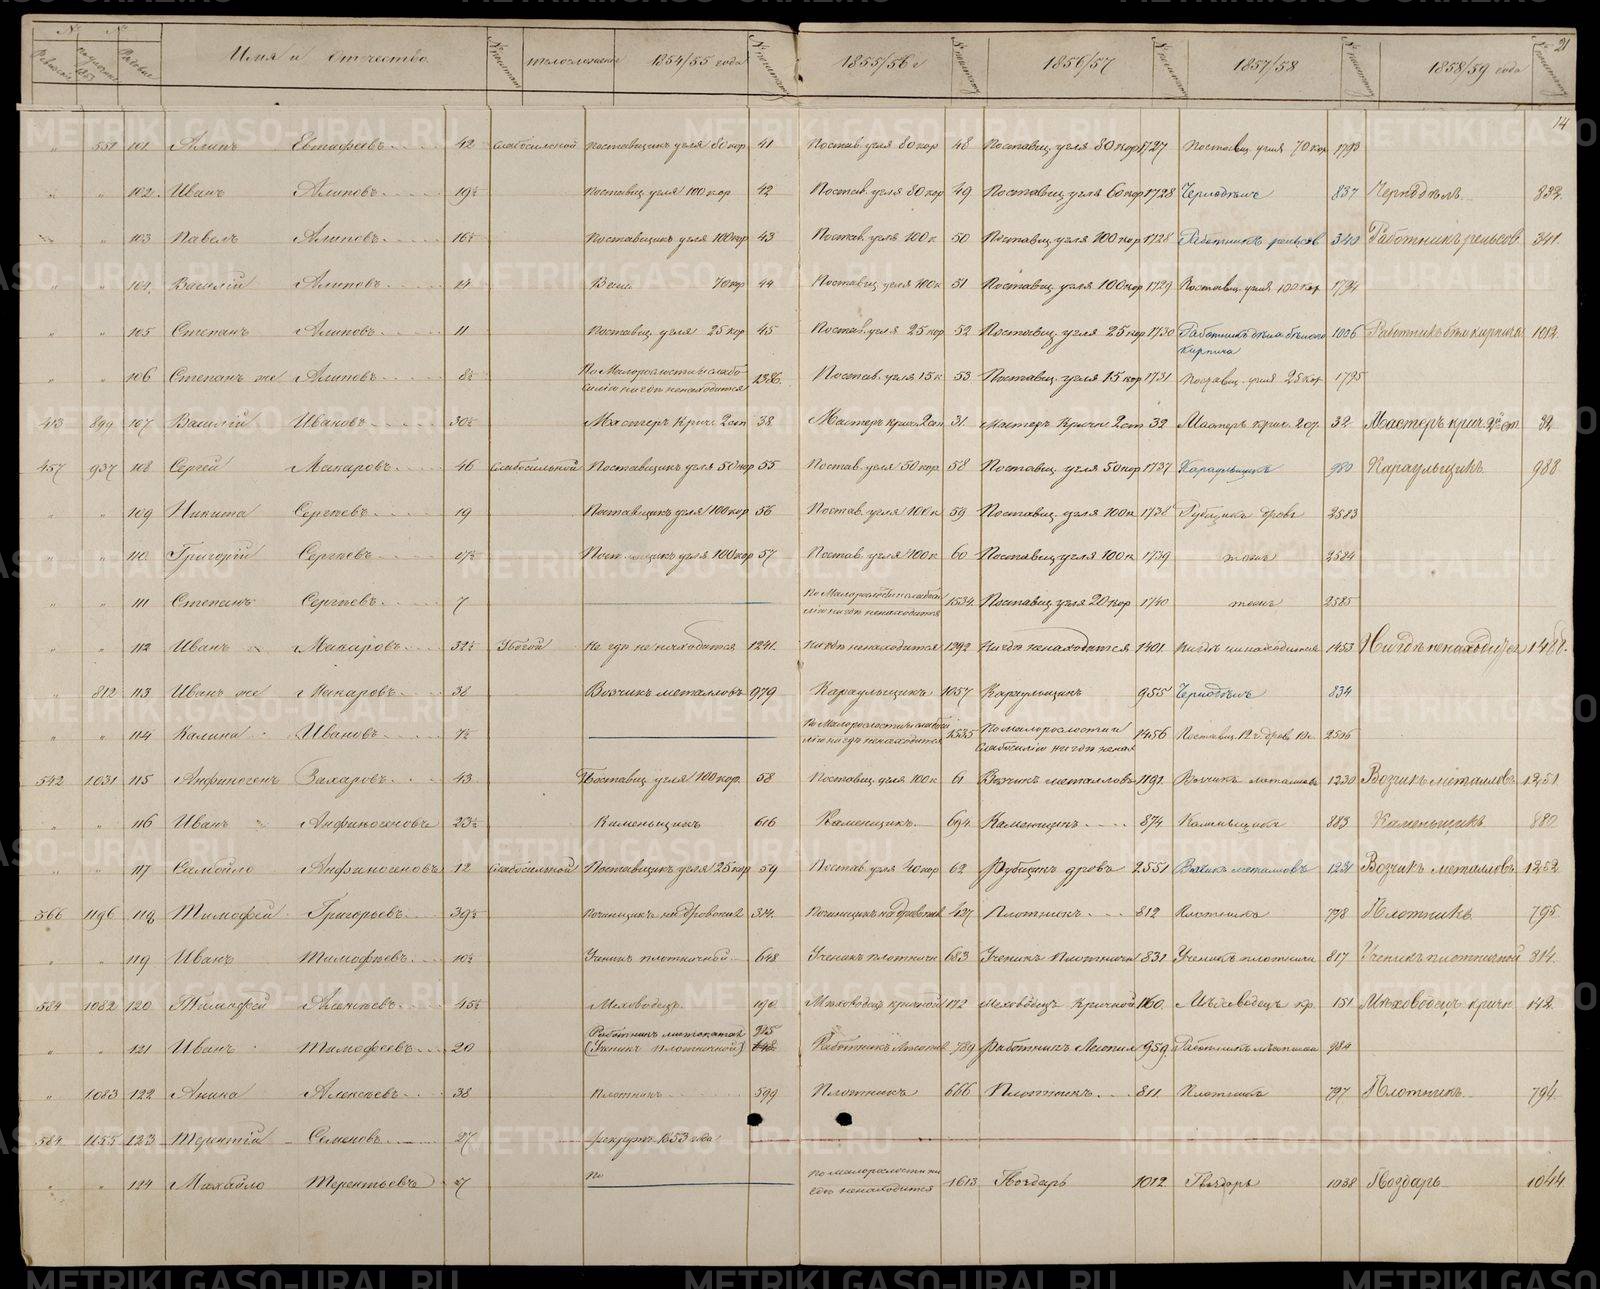 Имя и Отчество
телосложение
1854/55 года
1855/56 г
1856/57
1857/58
1858/59 года
21
14
" 551 101 42 Слабосильной Поставщикъ угля 80 кор 41 Постав. угля 80 кор 48 Поставщ. угля 80 кор 1727 Поставщ. угля 70 кор 1793
" " 102 Иванъ Алиповъ 19½ Поставщ угля 100 кор 42 Постав. угля 80 кор 49 Поставщ угля 60 кор 1728 Чернодѣлъ 837 Чернодѣлъ 832
" 103 Павелъ Алиповъ 16½ Поставщикъ угля 100 кор 43 Постав. угля 100 к 50 Поставщ угля 100 кор 1728 Работникъ рельсов 340 Работникъ рельсов 341
" " Василій Алиповъ 70 кор 44 Поставщ угля 100 к 51 Поставщ. угля 100 кор 1729 Поставщ. угля 100 кор 1794
" " 105 Степанъ Алиповъ 11 Поставщ. угля 25 кор 45 Постав. угля 25 кор 52 Поставщ угля 25 кор 1730 Работникъ 1006 Работникъ 1012
кирпича
" " 106 Степанъ же Алиповъ 8½ По Малорослости и слабо
силію нигдѣ ненаходится 1386 Постав. угля 15 к 53 Поставщ. угля 15 кор 1731 Поставщ. угля 25 кор 1795
413 899 107 Василій Ивановъ 30½ Мастеръ Крич. 2 ст 38 Мастеръ крич. 2 ст 31 Мастеръ Кричн 2 ст 32 Мастеръ крич. 32 Мастеръ крич. 2й ст 32
457 937 108 Сергей Макаровъ 46 Слабосильной Поставщикъ угля 50 кор 55 Постав. угля 50 кор 58 Поставщ. угля 50 кор 1737 Караульщикъ 980 Караульщикъ 988
" " 109 Никита Сергѣевъ 19 Поставщикъ угля 100 кор 56 Постав. угля 100 к 59 Поставщ. угля 100 к 1738 Рубщикъ дровъ 2583
" " 110 Григорій Сергѣевъ 17½ угля 100 кор 57 Постав. угля 100 к 60 Поставщ угля 100 к 1739 тожъ 2584
" " 111 Степанъ Сергѣевъ 7 По Малорослости и слабо
силію нигдѣ ненаходится 1534 Поставщ угля 20 кор 1740 тожъ 2585
" " 112 Иванъ Макаровъ 32½ Убогой Не гдѣ не находится 1241 Нигдѣ ненаходится 1392 Нигдѣ ненаходится 1401 Нигдѣ ненаходится 1453 Нигдѣ ненаходится
" 812 113 Иванъ же Макаровъ 38 Возчикъ металловъ 979 Караульщикъ 1057 Караульщикъ 955 Чернодѣлъ 834
" " 114 Калина Ивановъ 7½ По Малорослости и слабо
силію нигдѣ ненаходится 1535 По малорослости и
слабосилію нигдѣ ненах 1456
542 1031 115 Анфиногенъ Захаровъ 43 Поставщ угля 100 кор. 58 Поставщ. угля 100 к 61 Возчикъ металловъ 1191 Возчикъ металловъ 1230 Возчикъ металловъ 1251
" " 116 Иванъ Анфиногеновъ 23½ Каменьщикъ 616 Каменщикъ 694 Каменщикъ 874 Каменьщикъ 883 Каменьщикъ 880
" " 117 Самойло Анфиногеновъ 12 Слабосильной Поставщикъ угля 25 кор 59 Постав угля 40 кор 62 Рубщикъ дровъ 2551 Возчикъ металловъ 1231 Возчикъ металловъ 1252
566 1196 118 Тимофей Григорьевъ 39½ Починщикъ 314 Починщикъ 427 Плотникъ 812 Плотникъ 798 Плотникъ 795
" " 119 Иванъ Тимофѣевъ 10½ Ученикъ плотничной 648 Ученикъ плотничн 683 Ученикъ Плотничн 831 Ученикъ плотничн 817 Ученикъ плотничной 814
584 1082 120 Тимофей Алексѣевъ 45½ Меховодецъ 190 Мѣховодецъ кричной 172 Меховодецъ Кричной 160 Мѣховодецъ кр. 151 Мѣховодецъ кричн 142
Работникъ листокатал 915
" " 121 Иванъ Тимофеевъ 20 (Ученикъ плотничной) Работникъ 789 Работникъ Лесопил 959 Работникъ 984
" 1083 122 Аника Алексѣевъ 38 Плотникъ 599 Плотникъ 666 Плотникъ 811 Плотникъ 797 Плотникъ 794
584 1155 123 Терентій Семеновъ 27 рекрутъ 1853 года
" " 124 Михайло Терентьевъ 7 По По малорослости ни
гдѣ ненаходится 1613 Гвоздарь 1012 Гвоздарь 1038 Гвоздарь 1044
METRIKI.GASO-URAL.RU